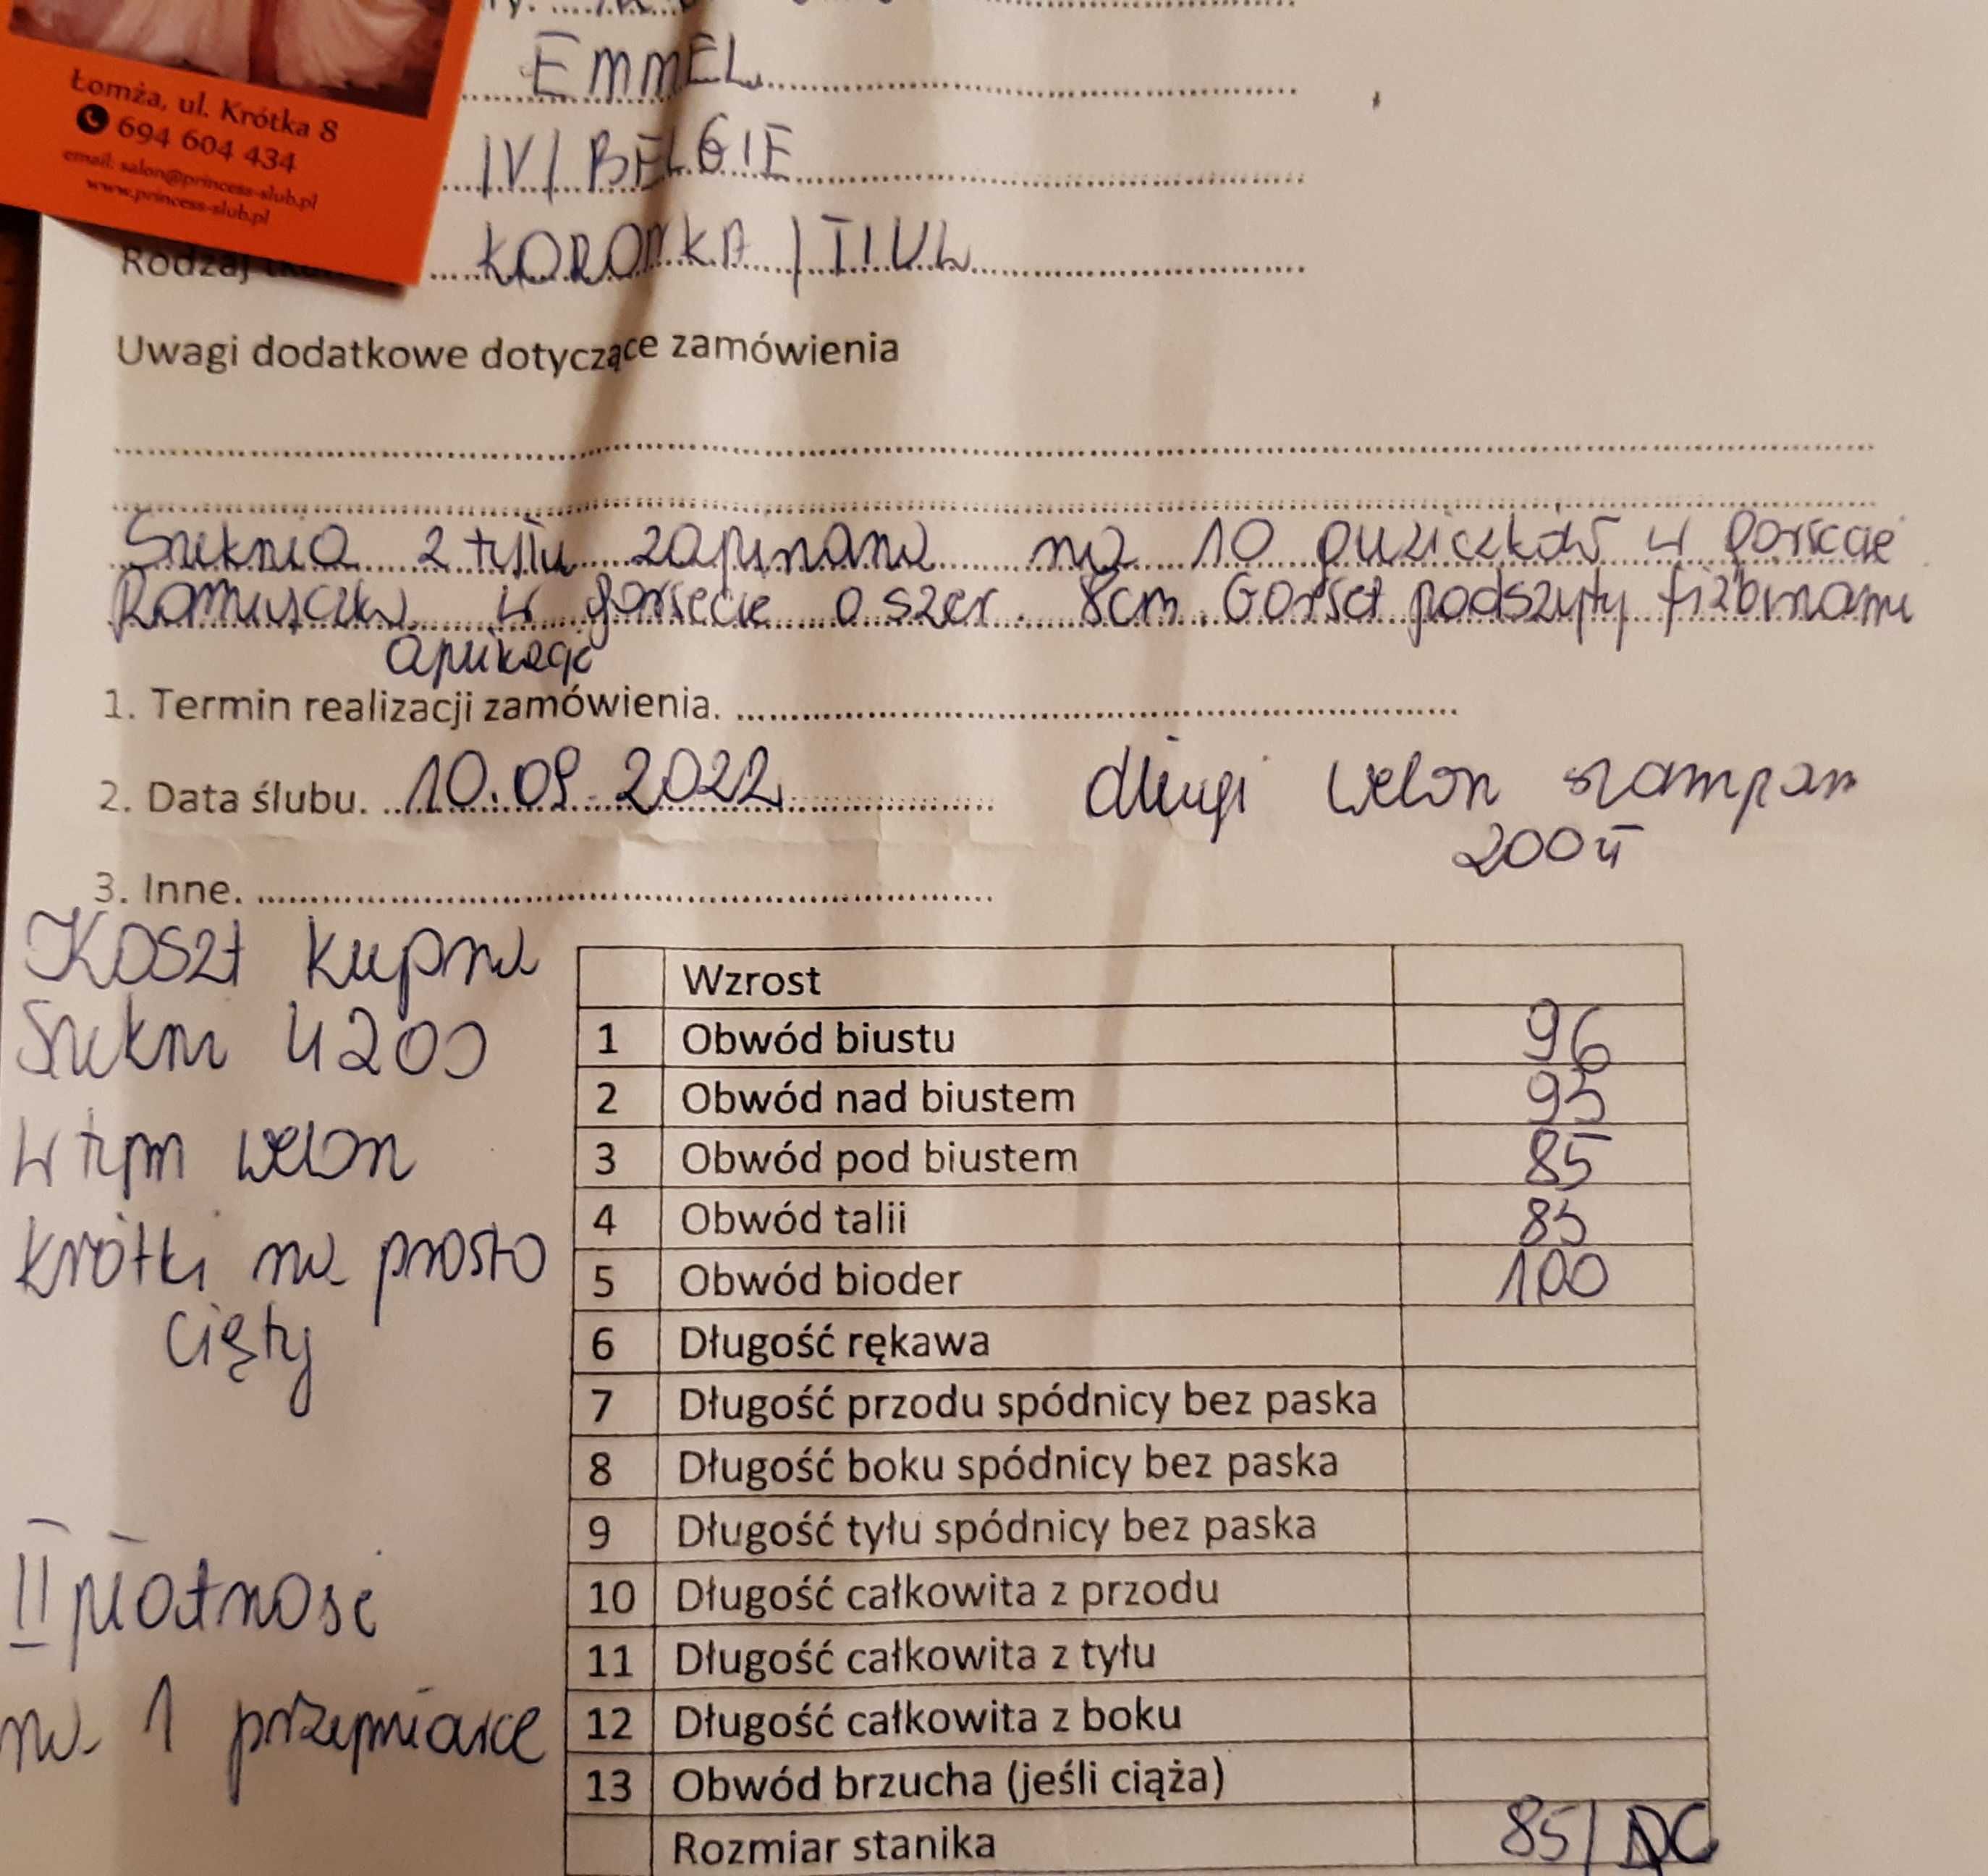 Łomża, ul. Krótka 8
694 604 434
email: salon@princess-slub.pl
www.princess-slub.pl
EMMEL
IV / BELGIE
Rodzaj
KORONKA / TIUL
Uwagi dodatkowe dotyczące zamówienia
Suknia z tyłu zapinana na 10 guziczków w gorsecie
Ramiączka w gorsecie o szer. 8cm. Gorset podszyty fiżbinami
aplikacje
1. Termin realizacji zamówienia.
2. Data ślubu. 10.09.2022
długi welon szampan
200 zł
3. Inne.
Koszt kupna
Sukni 4200
w tym welon
krótki na prosto
cięty
II płatność
na 1 przymiarce
Wzrost
1 Obwód biustu 96
2 Obwód nad biustem 93
3 Obwód pod biustem 85
4 Obwód talii 85
5 Obwód bioder 100
6 Długość rękawa
7 Długość przodu spódnicy bez paska
8 Długość boku spódnicy bez paska
9 Długość tyłu spódnicy bez paska
10 Długość całkowita z przodu
11 Długość całkowita z tyłu
12 Długość całkowita z boku
13 Obwód brzucha (jeśli ciąża)
Rozmiar stanika 85/ C